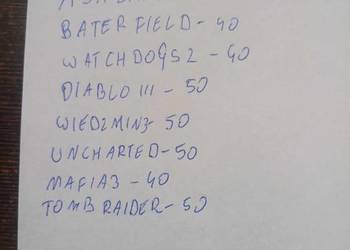 BATERFIELD - 40
WATCHDOGS 2 - 40
DIABLO III - 50
WIEDZMIN3 - 50
UNCHARTED - 50
MAFIA3 - 40
TOMB RAIDER - 50